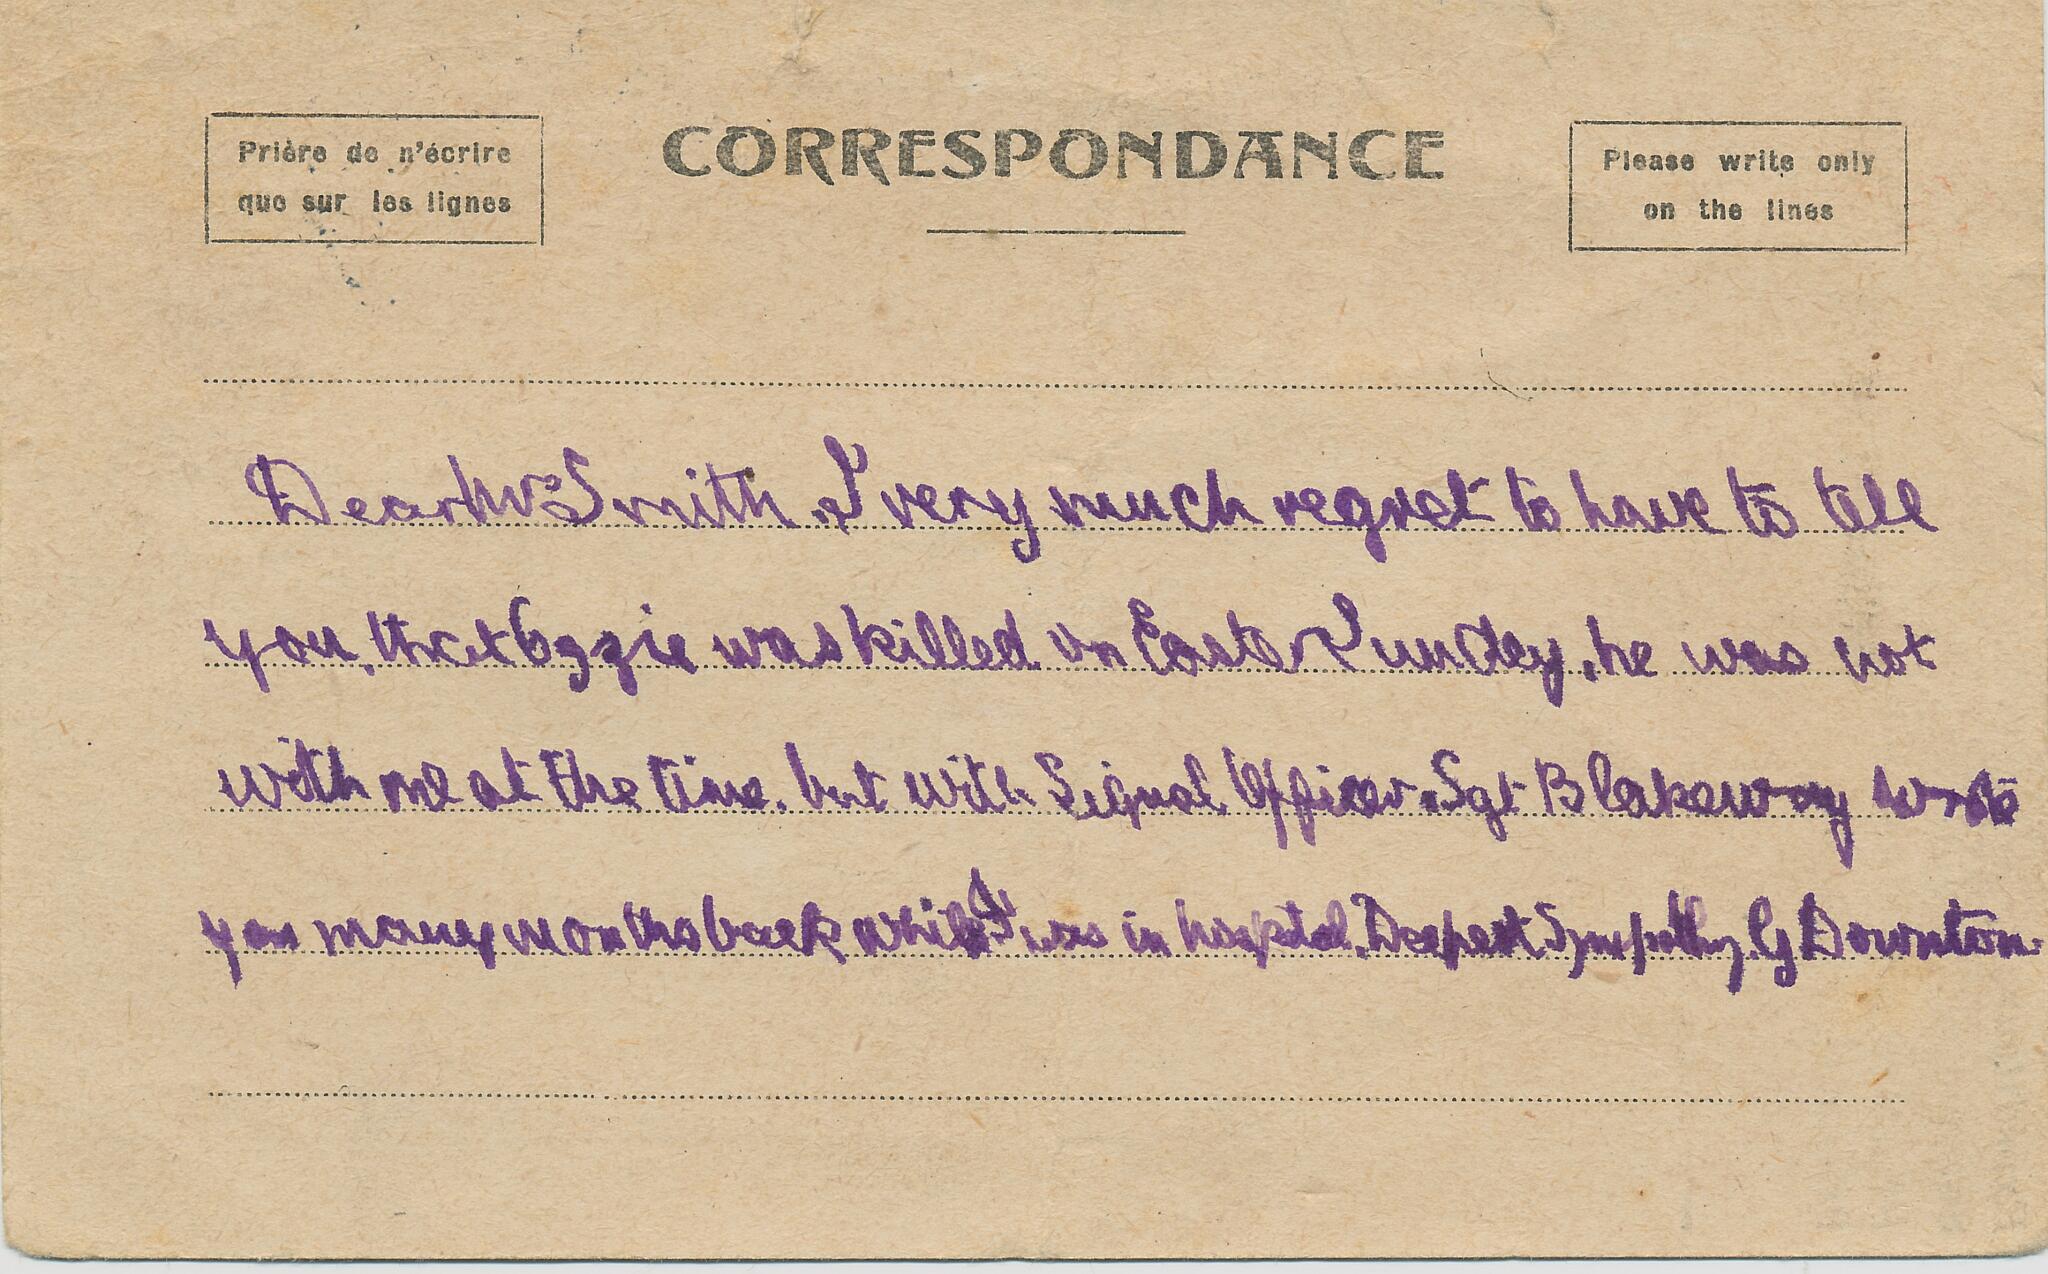 Prière de n'écrire
que sur les lignes
CORRESPONDANCE
Please write only
on the lines
Dear Mrs Smith. I very much regret to have to tell
you, that Ozzie was killed on Easter Sunday, he was not
with me at the time. but with Signal Officer. Sgt Blakeway wrote
you many months back while I was in hospital. Deepest Sympathy. G Downton.